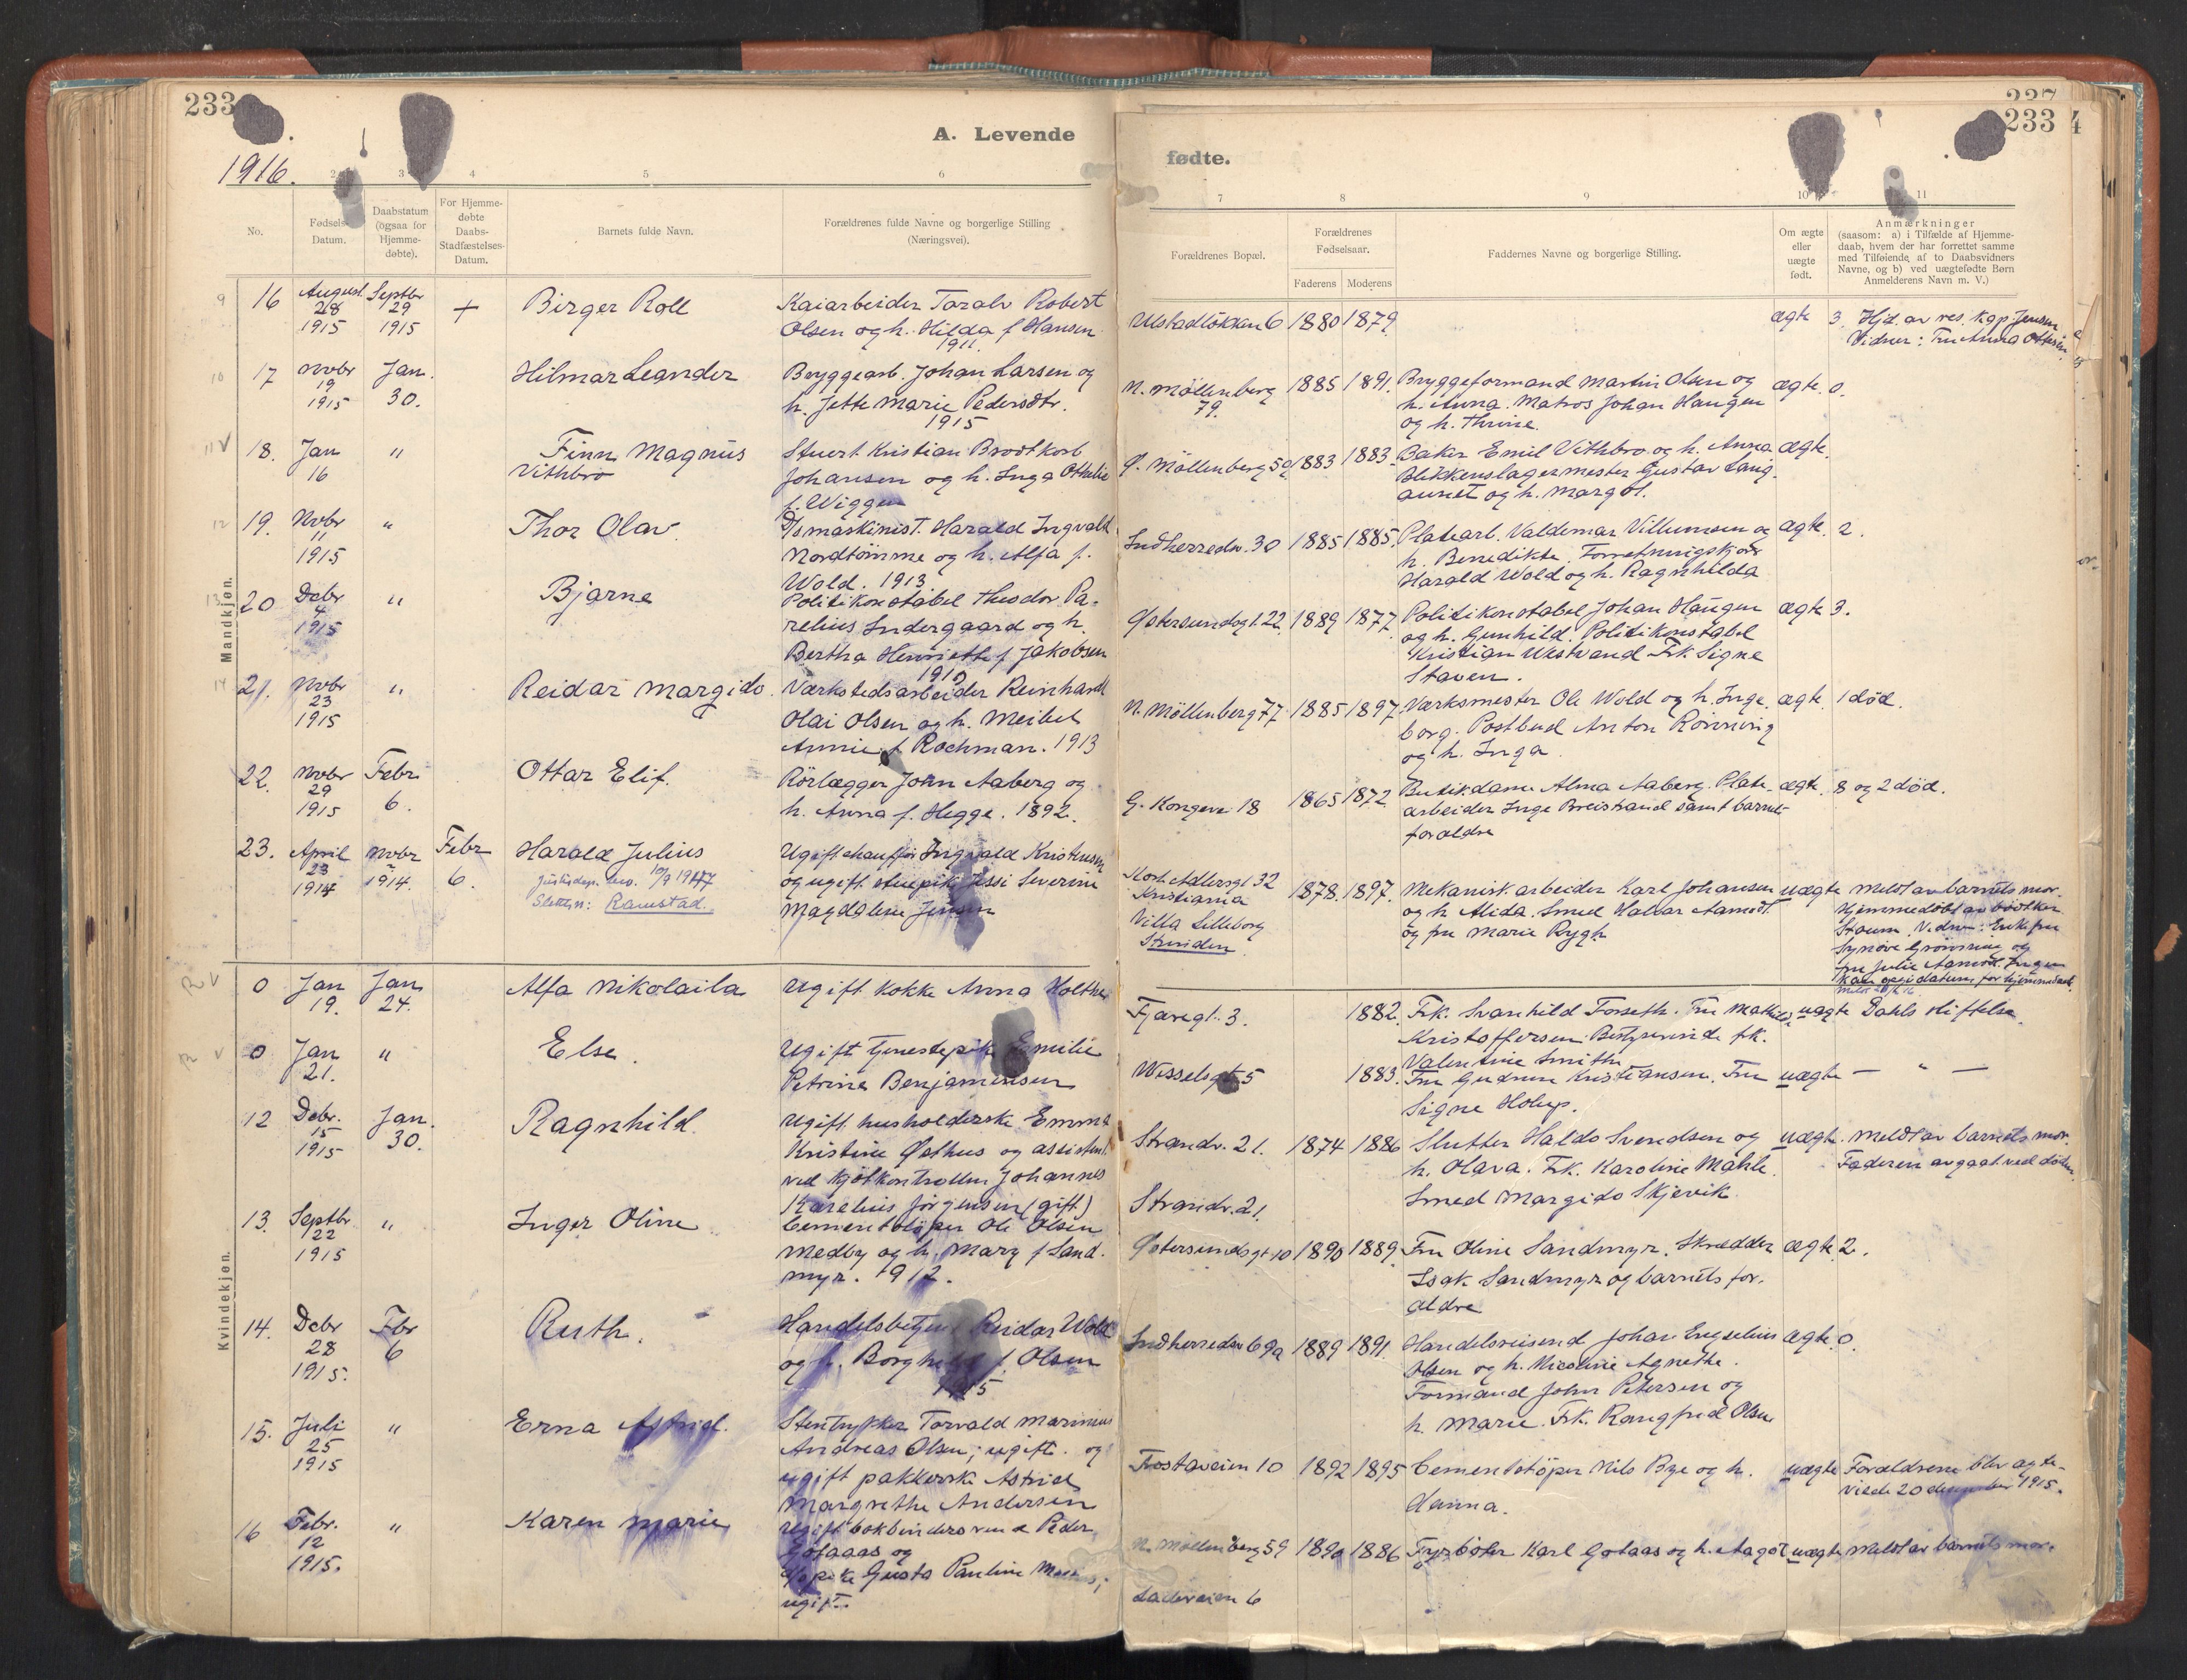 233
A. Levende
1916.
2 3 4 5 6
No.
Fødsels-
Datum.
Daabstatum
(ogsaa for
Hjemme-
døbte).
For Hjemme-
døbte
Daabs-
Stadfæstelses-
Datum.
Barnets fulde Navn.
Forældrenes fulde Navne og borgerlige Stilling
(Næringsvei).
Mandkjøn.
9 16 August 28 1915 Septbr 29 1915 + Birger Roll
Kaiarbeider Taralv Robert
Olsen og h. Hilda f Hansen
1911.
10 17 Novbr 19 1915 Jan. 30. Hilmar Leander
Bryggearb. Johan Larsen og
h. Jette Marie Pedersdtr.
1915
11 v 18. Jan 16 " Finn Magnus
Vithbro
Stuert Kristian Brodtkorb
Johansen og h. Inga Othelie
f. Wiggen
12 19. Novbr 11 1915 " Thor Olav
D/s maskinist. Harald Ingvald
Nordtømme og h. Alfa f.
Wold. 1913
13 20 Debr 4 1915 " Bjarne
Politikonstabel Theodor Pa-
relius Indergaard og h.
Bertha Henriette f Jakobsen
1910
14 21. Novbr 23 1915 " Reidar Margido.
Værkstedsarbeider Reinhardt
Olai Olsen og h. Meibel
Annie f Rochman. 1913
22. Novbr 29 1915 Febr. 6. Ottar Elif.
Rørlægger John Aaberg og
h. Anna f. Hegge. 1892.
23. April 23 1914 Novbr 2 1914. Febr 6. Harald Julius
Slettn: Ramstad.
Ugift chauffør Ingvald Kristensen
og ugift stuepik Jessi Severine
Magdalene Jensen
Kvindekjøn.
R v 0 Jan 19. Jan 24. Alfa Nikolaila
Ugift kokke Anna Holthe
R v 0 Jan 21. " Else.
Ugift tjenestepike Emilie
Petrine Benjaminsen
12 Debr. 15 1915 Jan. 30. Ragnhild.
Ugift husholderske Emma
Kristine Østhus og assistent
ved kjøtkontrollen Johannes
Karelius Jørgensen (gift)
13. Septbr 22 1915 " Inger Oline
Cementstøper Ole Olsen
Medby og h. Mary f Sand-
myr. 1912.
14. Debr 28 1915. Fbr 6 Ruth.
Handelsbetjent Reidar Wold
og h. Borghild f. Olsen
1915
15. Juli 25 1915 " Erna Astrid.
Stentrykker Torvald Marinius
Andreas Olsen; ugift. og
ugift pakkerske Astrid
Margrethe Andersen
16 Febr. 12 1915. " Karen Marie
Ugift bokbindersvend Peder
Gotaas og
Gusta Pauline
ugift.
237
4
233
fødte.
7 8 9 10 11
Forældrenes Bopæl.
Forældrenes
Fødselsaar.
Faderens Moderens
Faddernes Navne og borgerlige Stilling.
Om ægte
eller
uægte
født.
Anmærkninger
(saasom: a) i Tilfælde af Hjemme-
daab, hvem der har forrettet samme
med Tilføiende af to Daabsvidners
Navne, og b) ved uægtefødte Børn
Anmelderens Navn m. V.)
Ulstadløkken 6 1880 1879 ægte 3. Hjd. av res. kap. Jensen
Vidner: Fru Anna Ottesen
N. Møllenberg 79. 1885 1891. Bryggeformand Martin Olsen og ægte. 0.
h. Anna. Matros Johan Haugen
og h. Thrine.
Ø. Møllenberg 50 1883 1883. Baker Emil Vithbro og h. Anna ægte.
Blikkenslagermester Gustav Laug-
aunet og h. Margot.
Indherredsv. 30 1885 1885. Platearb. Valdemar Villumsen og ægte. 2.
h. Benedikte. Forretningskjører
Harald Wold og h. Ragnhilda
Østersundsgt. 22. 1889 1877. Politikonstabel Johan Haugen ægte 3.
og h. Gunhild. Politikonstabel
Kristian Westvand Frk. Signe
Staven.
N. Møllenberg 77 1885 1897. Værksmester Ole Wold og h. Inge- ægte. 1 død.
borg. Postbud Anton Rønning
og h. Inga.
G. Kongev. 18 1865 1872 Butikdame Alma Aaberg. Plate- ægte. 8 og 2 død.
arbeider Inge Breistrand samt barnets
forældre
Mort. Adlersgt 32
Kristiania
Villa Lilleborg
Strinden.
1878. 1897. Mekanisk. arbeider Karl Johansen uægte Meldt av barnets mor.
og h Alida. Smed Halvar Aamodt
og fru Marie Rygh
Hjemmedøbt av bødtker
Staum. Vidner: Enkefru
Synøve Grønning og
fru Julie Aamodt. Ingen
kan opgi datum for hjemmedaab.
Fjæregt. 3. 1882. Frk. Svanhild Forseth. Fru Mathilde uægte Dahls stiftelse.
Kristoffersen. Bestyrerinde frk.
Valentine Smith
Wesselsgt. 5 1883. Fru Gudrun Kristiansen. Fru uægte — " —
Signe Holup.
Strandv. 21. 1874 1886 Slutter Haldo Svendsen og uægte. Meldt av barnets mor.
h. Olava. Frk. Karoline Mæhle.
Faderen avgaat ved døden
Smed Margido Skjevik.
Strandv. 21.
Østersundsgt 10 1890 1889. Fru Oline Sandmyr. Skrædder ægte 2.
Isak Sandmyr og barnets for-
ældre
Indherredsv 69a 1889 1891. Handelsreisend Johan Engselius ægte. 0.
Olsen og h. Nicoline Agnethe.
Formand John Petersen og
h. Marie. Frk. Rangfrid Olsen
Frostaveien 10 1892 1895 Cementstøper Nils Bye og h. uægte Forældrene blev ægte-
Hanna.
viede 20 december 1915.
N. Møllenberg 59 1890 1886 Fyrbøter Karl Gotaas og h. Aagot uægte Meldt av barnets mor.
Ladeveien 6